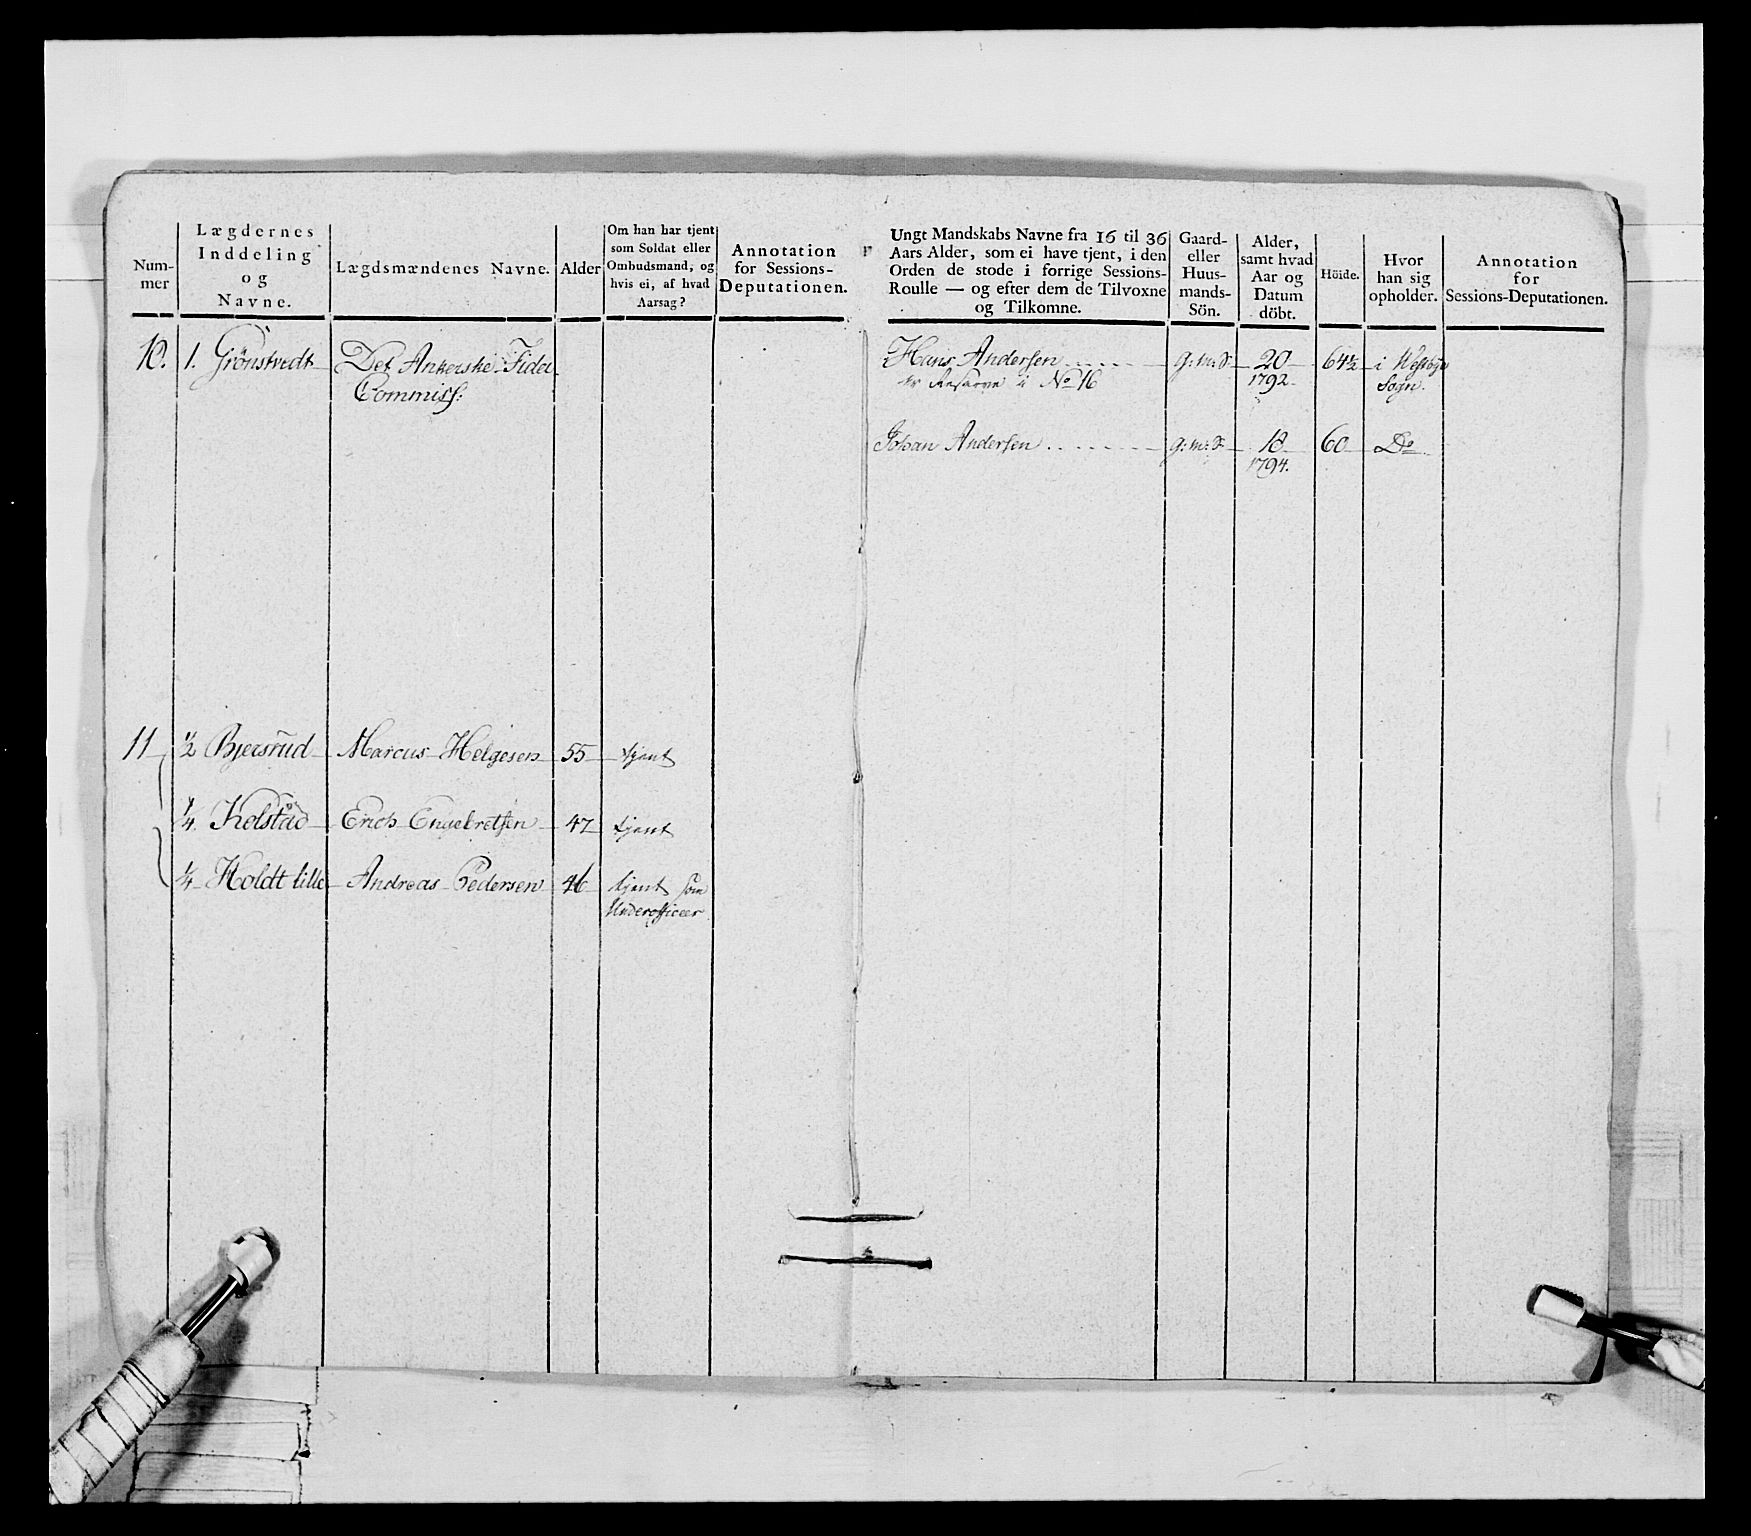 Num-
mer
Lægdernes
Inddeling
og
Navne.
Lægdsmændenes Navne.
Alder
Om han har tjent
som Soldat eller
Ombudsmand, og
hvis ei, af hvad
Aarsag?
Annotation
for Sessions-
Deputationen.
10.
1. Grönstvedt
Det Ankerske Fidei
Commiss:
11
1/2 Bjersrud
Marcus Helgesen
55
tjent
1/4 Kolstad
Erich Engebretsen
47
tjent
1/4 Holdt lille
Andreas Pedersen
46
tjent som
Underofficeer
Ungt Mandskabs Navne fra 16 til 36
Aars Alder, som ei have tjent, i den
Orden de stode i forrige Sessions-
Roulle — og efter dem de Tilvoxne
og Tilkomne.
Gaard-
eller
Huus-
mands-
Sön.
Alder,
samt hvad
Aar og
Datum
döbt.
Höide.
Hvor
han sig
opholder.
Annotation
for
Sessions-Deputationen.
Hans Andersen
er Reserve i No 16
g: m: S
20
1792
64 1/2
i Westbye
Sogn.
Johan Andersen
g: m: S
18
1794.
60
Do